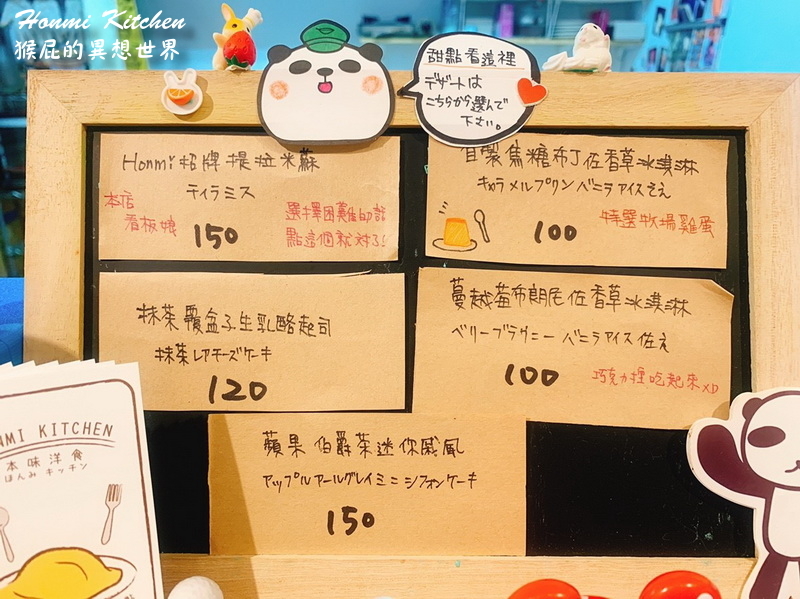 Honmi Kitchen
猴屁的異想世界
甜點看這裡
デザートは
こちらから選んで
下さい。
Honmi 招牌提拉米蘇
ティラミス
本店
看板娘
150
選擇困難的話
點這個就對了!
自製焦糖布丁佐香草冰淇淋
キャラメルプリンバニラアイスそえ
100
特選牧場雞蛋
抹茶覆盆子生乳酪起司
抹茶レアチーズケーキ
120
蔓越莓布朗尼佐香草冰淇淋
ベリーブラウニーバニラアイス佐え
100
巧克力控吃起來XD
蘋果伯爵茶迷你戚風
アップルアールグレイミニシフォンケーキ
150
NMI KITCHEN
本味洋食
ほんみキッチン